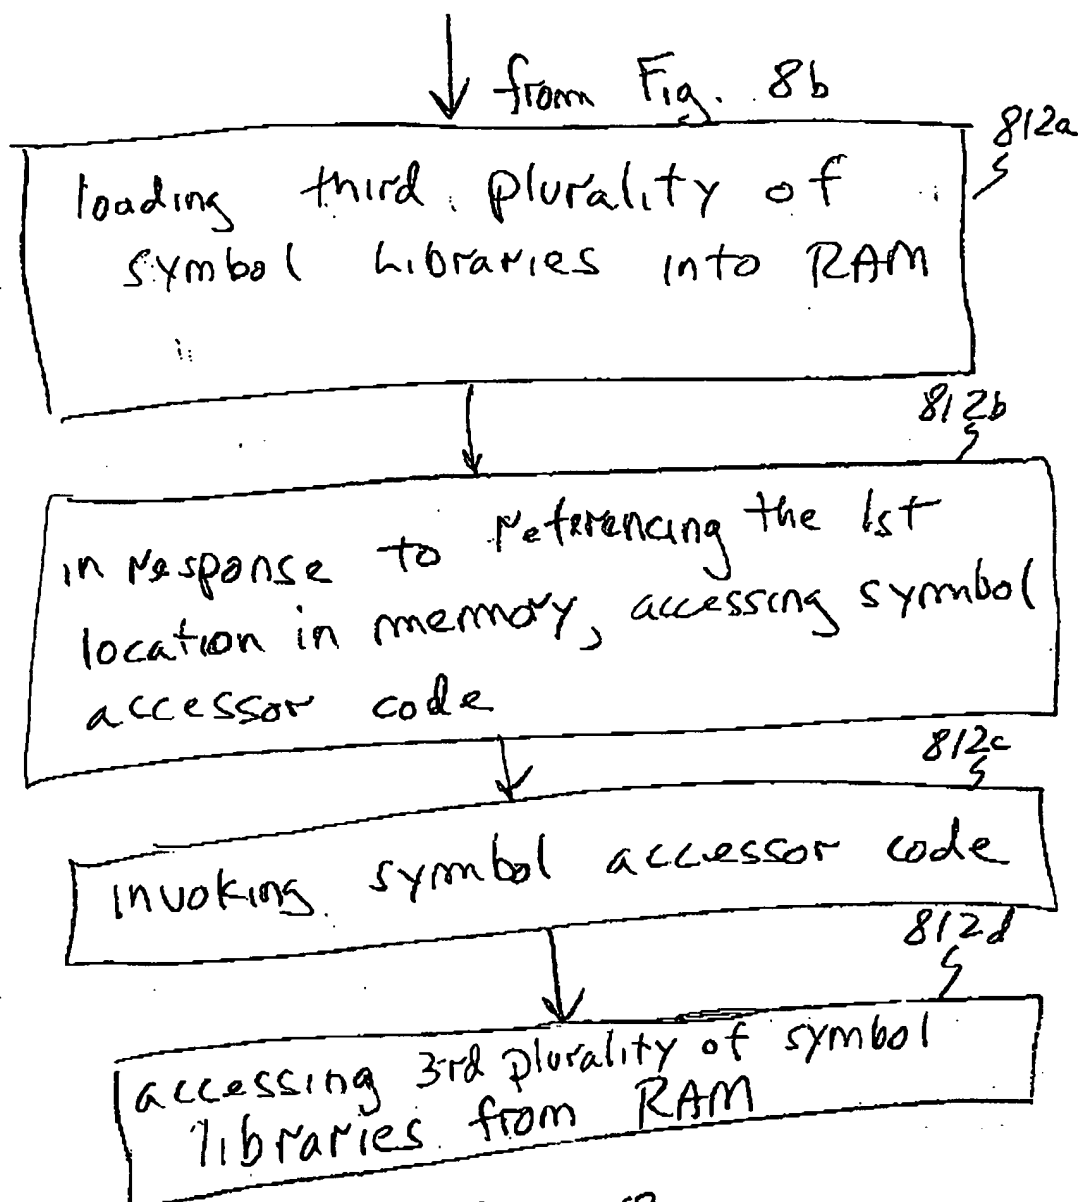 from Fig. 8b
812a
loading third plurality of
symbol libraries into RAM
812b
in response to referencing the 1st
location in memory, accessing symbol
accessor code
812c
invoking symbol accessor code
812d
accessing 3rd plurality of symbol
libraries from RAM